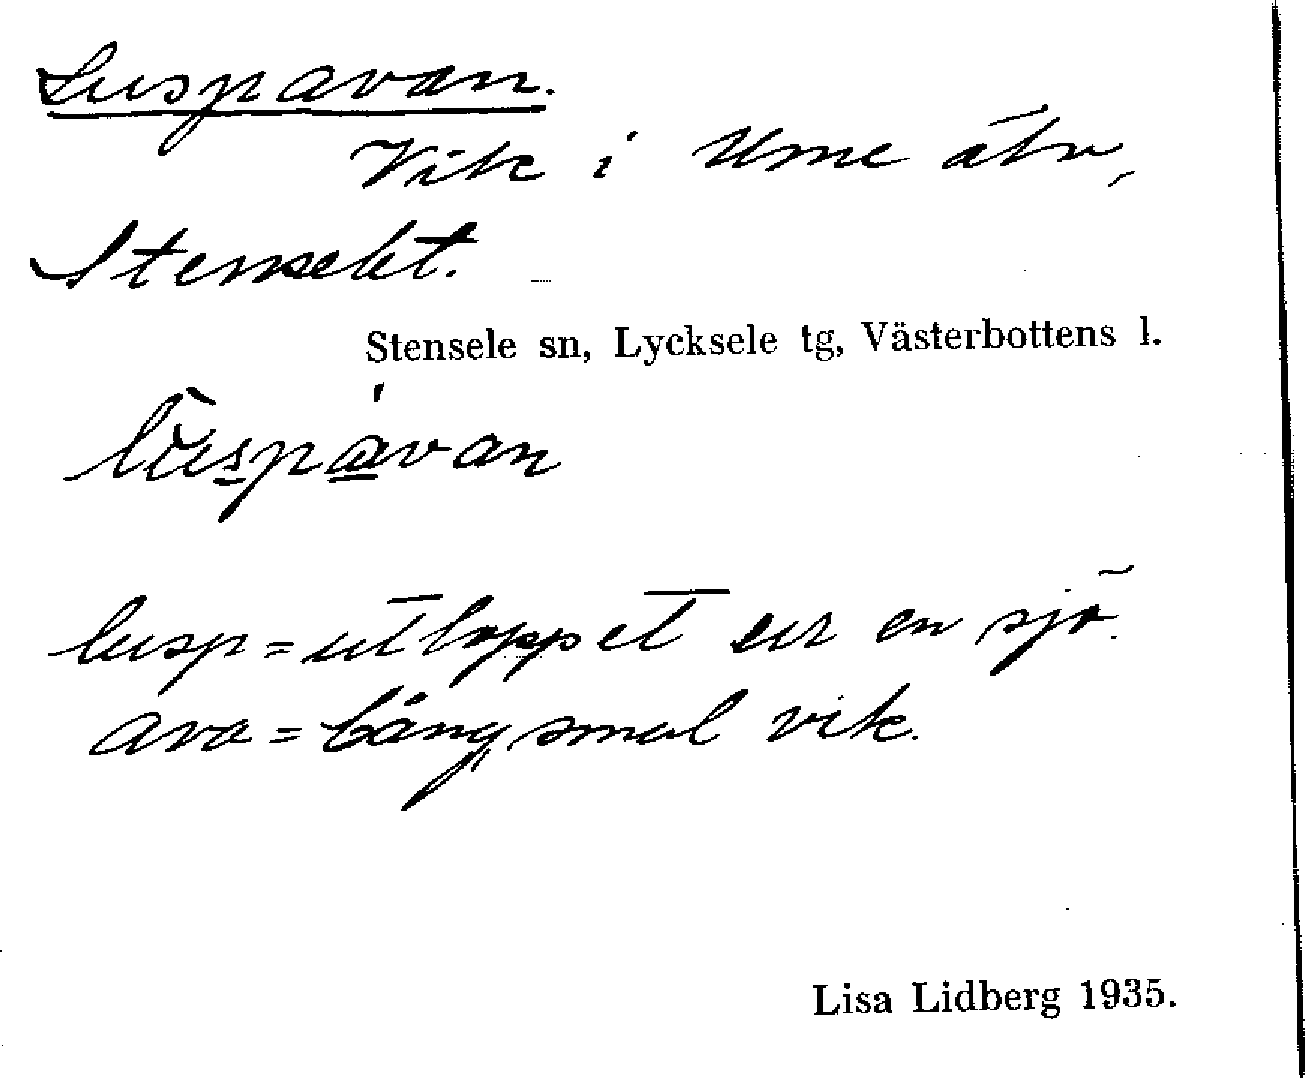 Luspavan.
Vik i Ume älv,
Stensekt.
Stensele sn, Lycksele tg, Västerbottens l.
lùspávan
lusp = utloppet ur en sjö.
ava = lång, smal vik.
Lisa Lidberg 1935.